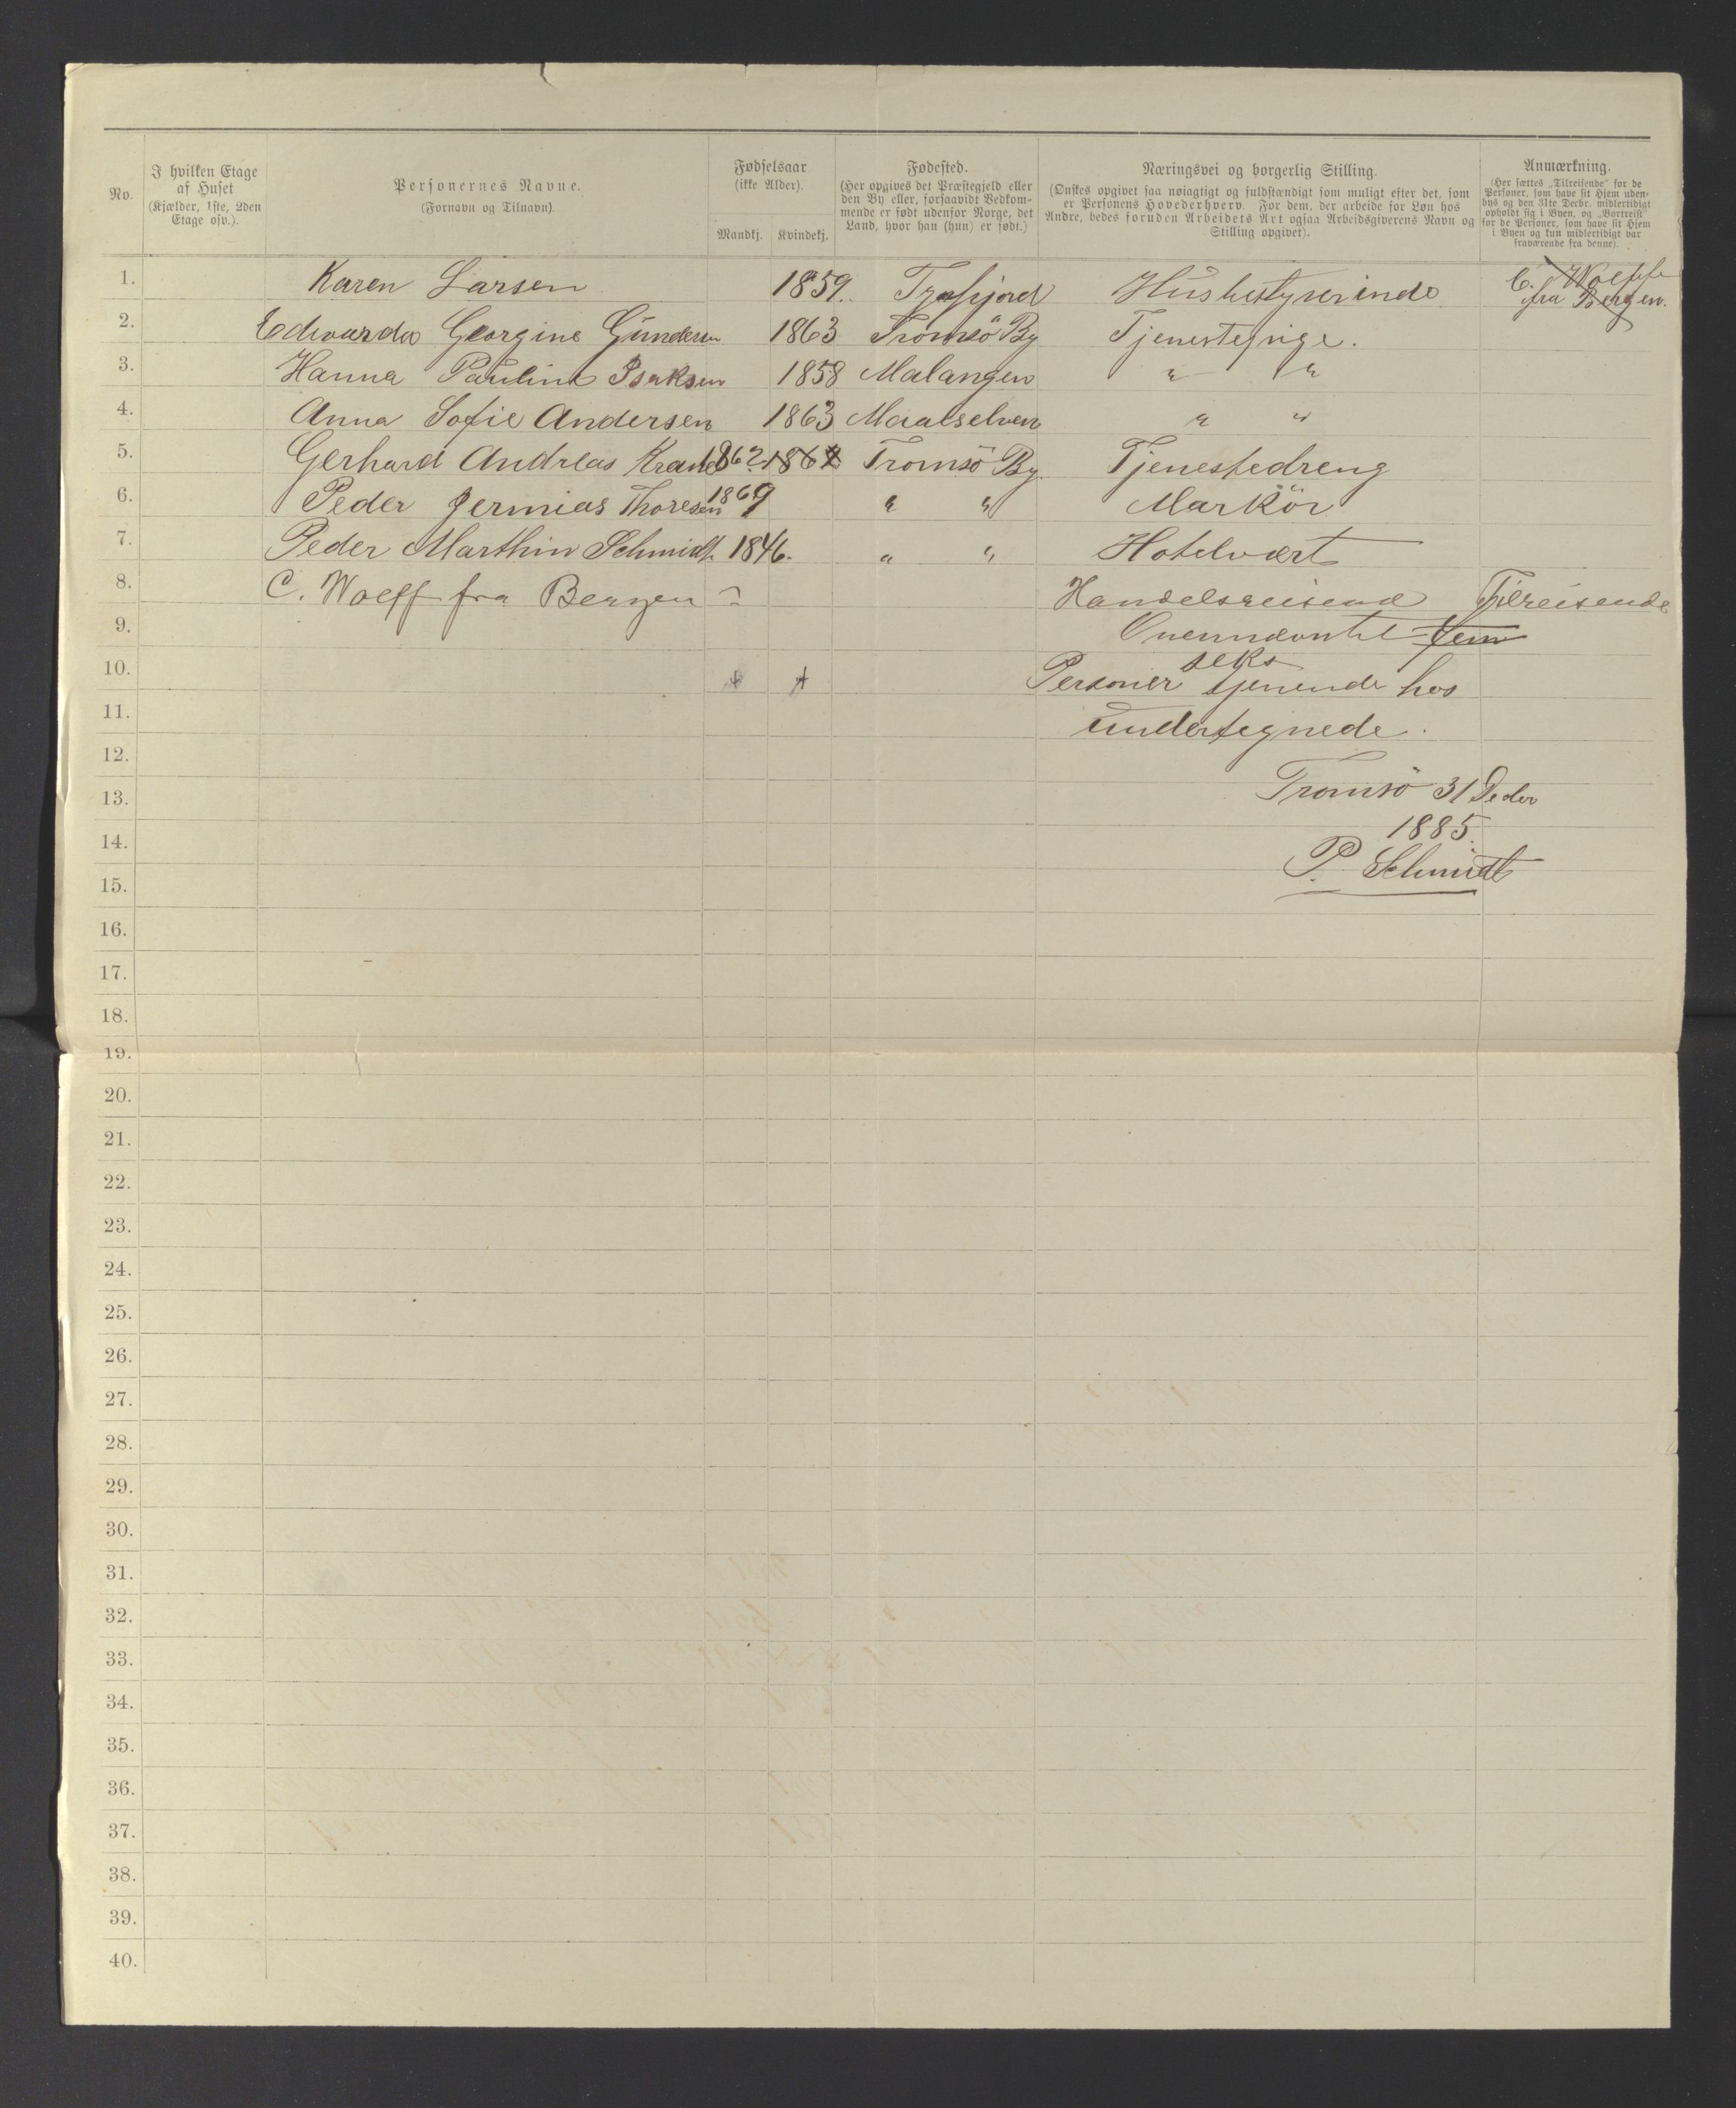 No.
I hvilken Etage
af Huset
(Kjælder, 1ste, 2den
Etage osv.).
Personernes Navne.
(Fornavn og Tilnavn).
Fødselsaar
(ikke Alder).
Mandkj. Kvindekj.
Fødested.
(Her opgives det Præstegjeld eller
den By eller, forsaavidt Vedkom-
mende er født udenfor Norge, det
Land, hvor han (hun) er født.)
Næringsvei og borgerlig Stilling.
(Ønskes opgivet saa nøiagtigt og fuldstændigt som muligt efter det, som
er Personens Hovederhverv. For dem, der arbeide for Løn hos
Andre, bedes foruden Arbeidets Art ogsaa Arbeidsgiverens Navn og
Stilling opgivet).
Anmærkning.
(Her sættes „Tilreisende“ for de
Personer, som have sit Hjem uden-
bys og den 31te Decbr. midlertidigt
opholdt sig i Byen, og „Bortreist“
for de Personer, som have sit Hjem
i Byen og kun midlertidigt var
fraværende fra denne).
1. Karen Larsen 1859. Husbestyrerinde C. Wolff
fra Bergen.
2. Edevarda Georgine Gundersen 1863 Tromsö By Tjenestepige.
3. Hanna Pauline Isaksen 1858 Malangen " "
4. Anna Sofie Andersen 1863 Maalselven " "
5. Gerhard Andreas 1862 1862 Tromsö By. Tjenestedreng
6. Peder Jermias Thoresen 1869 " " Markör
7. Peder Marthin Schmidt. 1846. " " Hotelvært
8. C. Woeff fra Bergen ? Handelsreisend Tilreisende
9. Ovennævnte fem
seks
10. Personer tjenende hos
11. undertegnede.
12.
13. Tromsö 31 Decbr
14. 1885.
15. P. Schmidt
16.
17.
18.
19.
20.
21.
22.
23.
24.
25.
26.
27.
28.
29.
30.
31.
32.
33.
34.
35.
36.
37.
38.
39.
40.